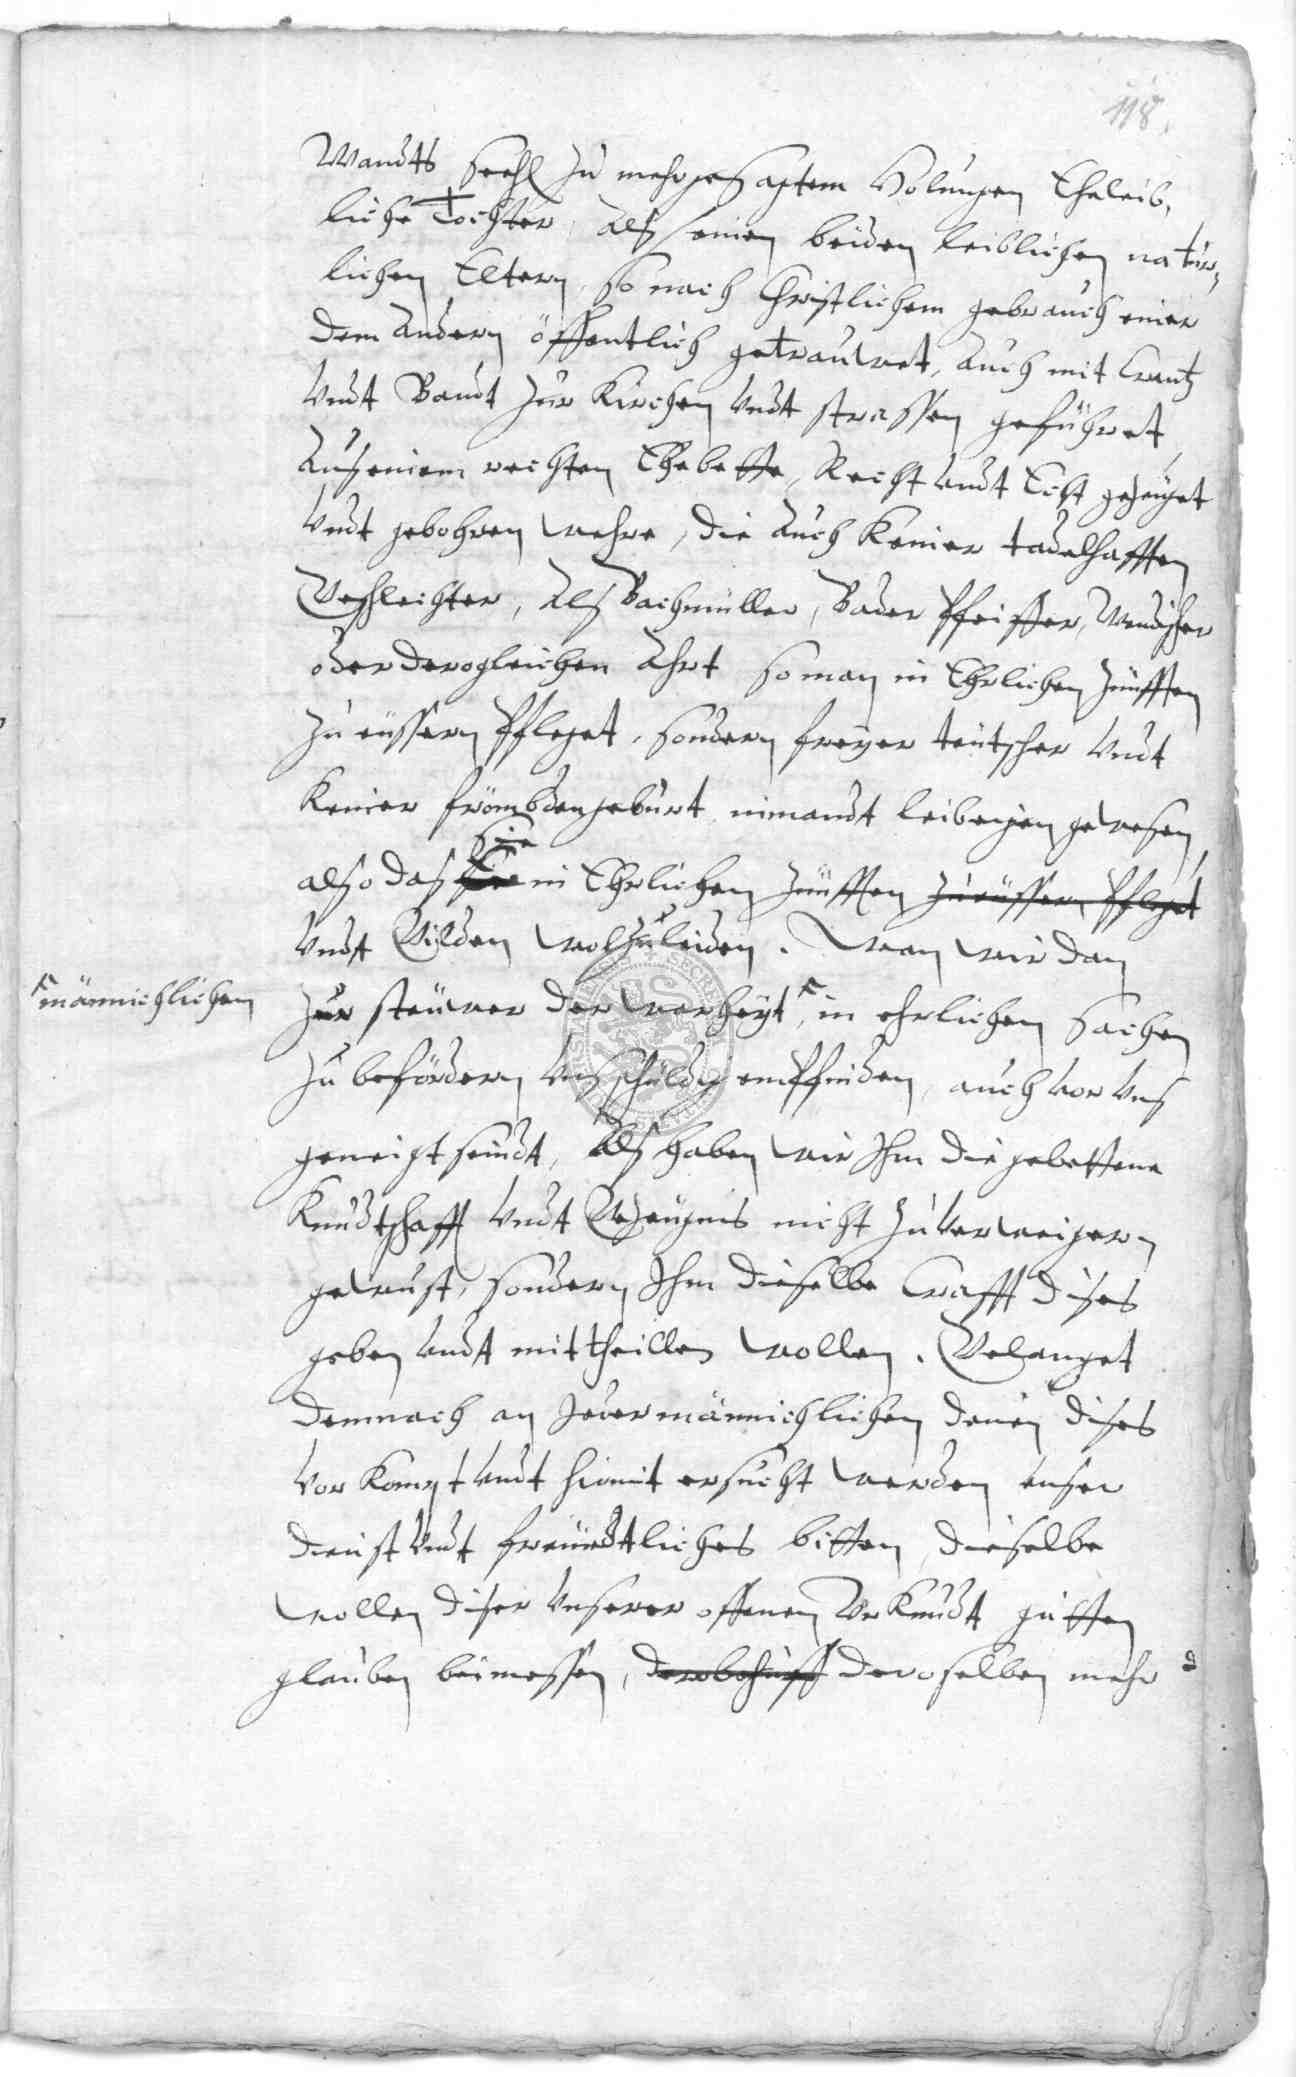 118.
Wandts seehl zu mehrgesagtem Holungen Eheleib,
liche Tochter, alß seinen beiden leiblichen natür-
lichen Eltern, so nach Christlichem gebrauch einer
dem Andern öffentlich getrauwet, auch mit Crantz
Undt Bandt zur Kirchen Undt strassen geführet
Auß einem rechten Ehebette, Recht undt Echt gezeuget
Undt gebohren wehre, die Auch Keiner tadelhafften
Geschlechter, Alß Bachmüller, Bader Pfeiffer, Wendischer
oder dergleichen Ahrt so man in Ehrlichen Zünfften
zu eüssern Pfleget, sondern freyer teütscher Undt
Keiner frömbden geburt nimandt leibeigen gewesen
also daß Sie in Ehrlichen Zünfften zu eüssern Pfleget
Undt Gilden wol zu leiden. Wan wir dan
männichlichen
Zur steüwer der warheyt, in ehrlichen sachen
Zu befördern Unß schuldig empfinden, auch vor Unß
geneigt seindt, Alß haben wir Ihm die gebettene
Kundtschafft Undt Gezeügnis nicht zu verweigern
gewust, sondern Ihm dieselbe Crafft dises
geben undt mittheillen wollen. Gelanget
demnach an Jedermännichlichen denen dises
vor Kompt undt hiemit ersucht werden unser
dienst Undt freündtliches bitten, dieselbe
wollen diser Unserer offenen Urkundt gutten
glauben beimessen, derobehuff deroselben mehr